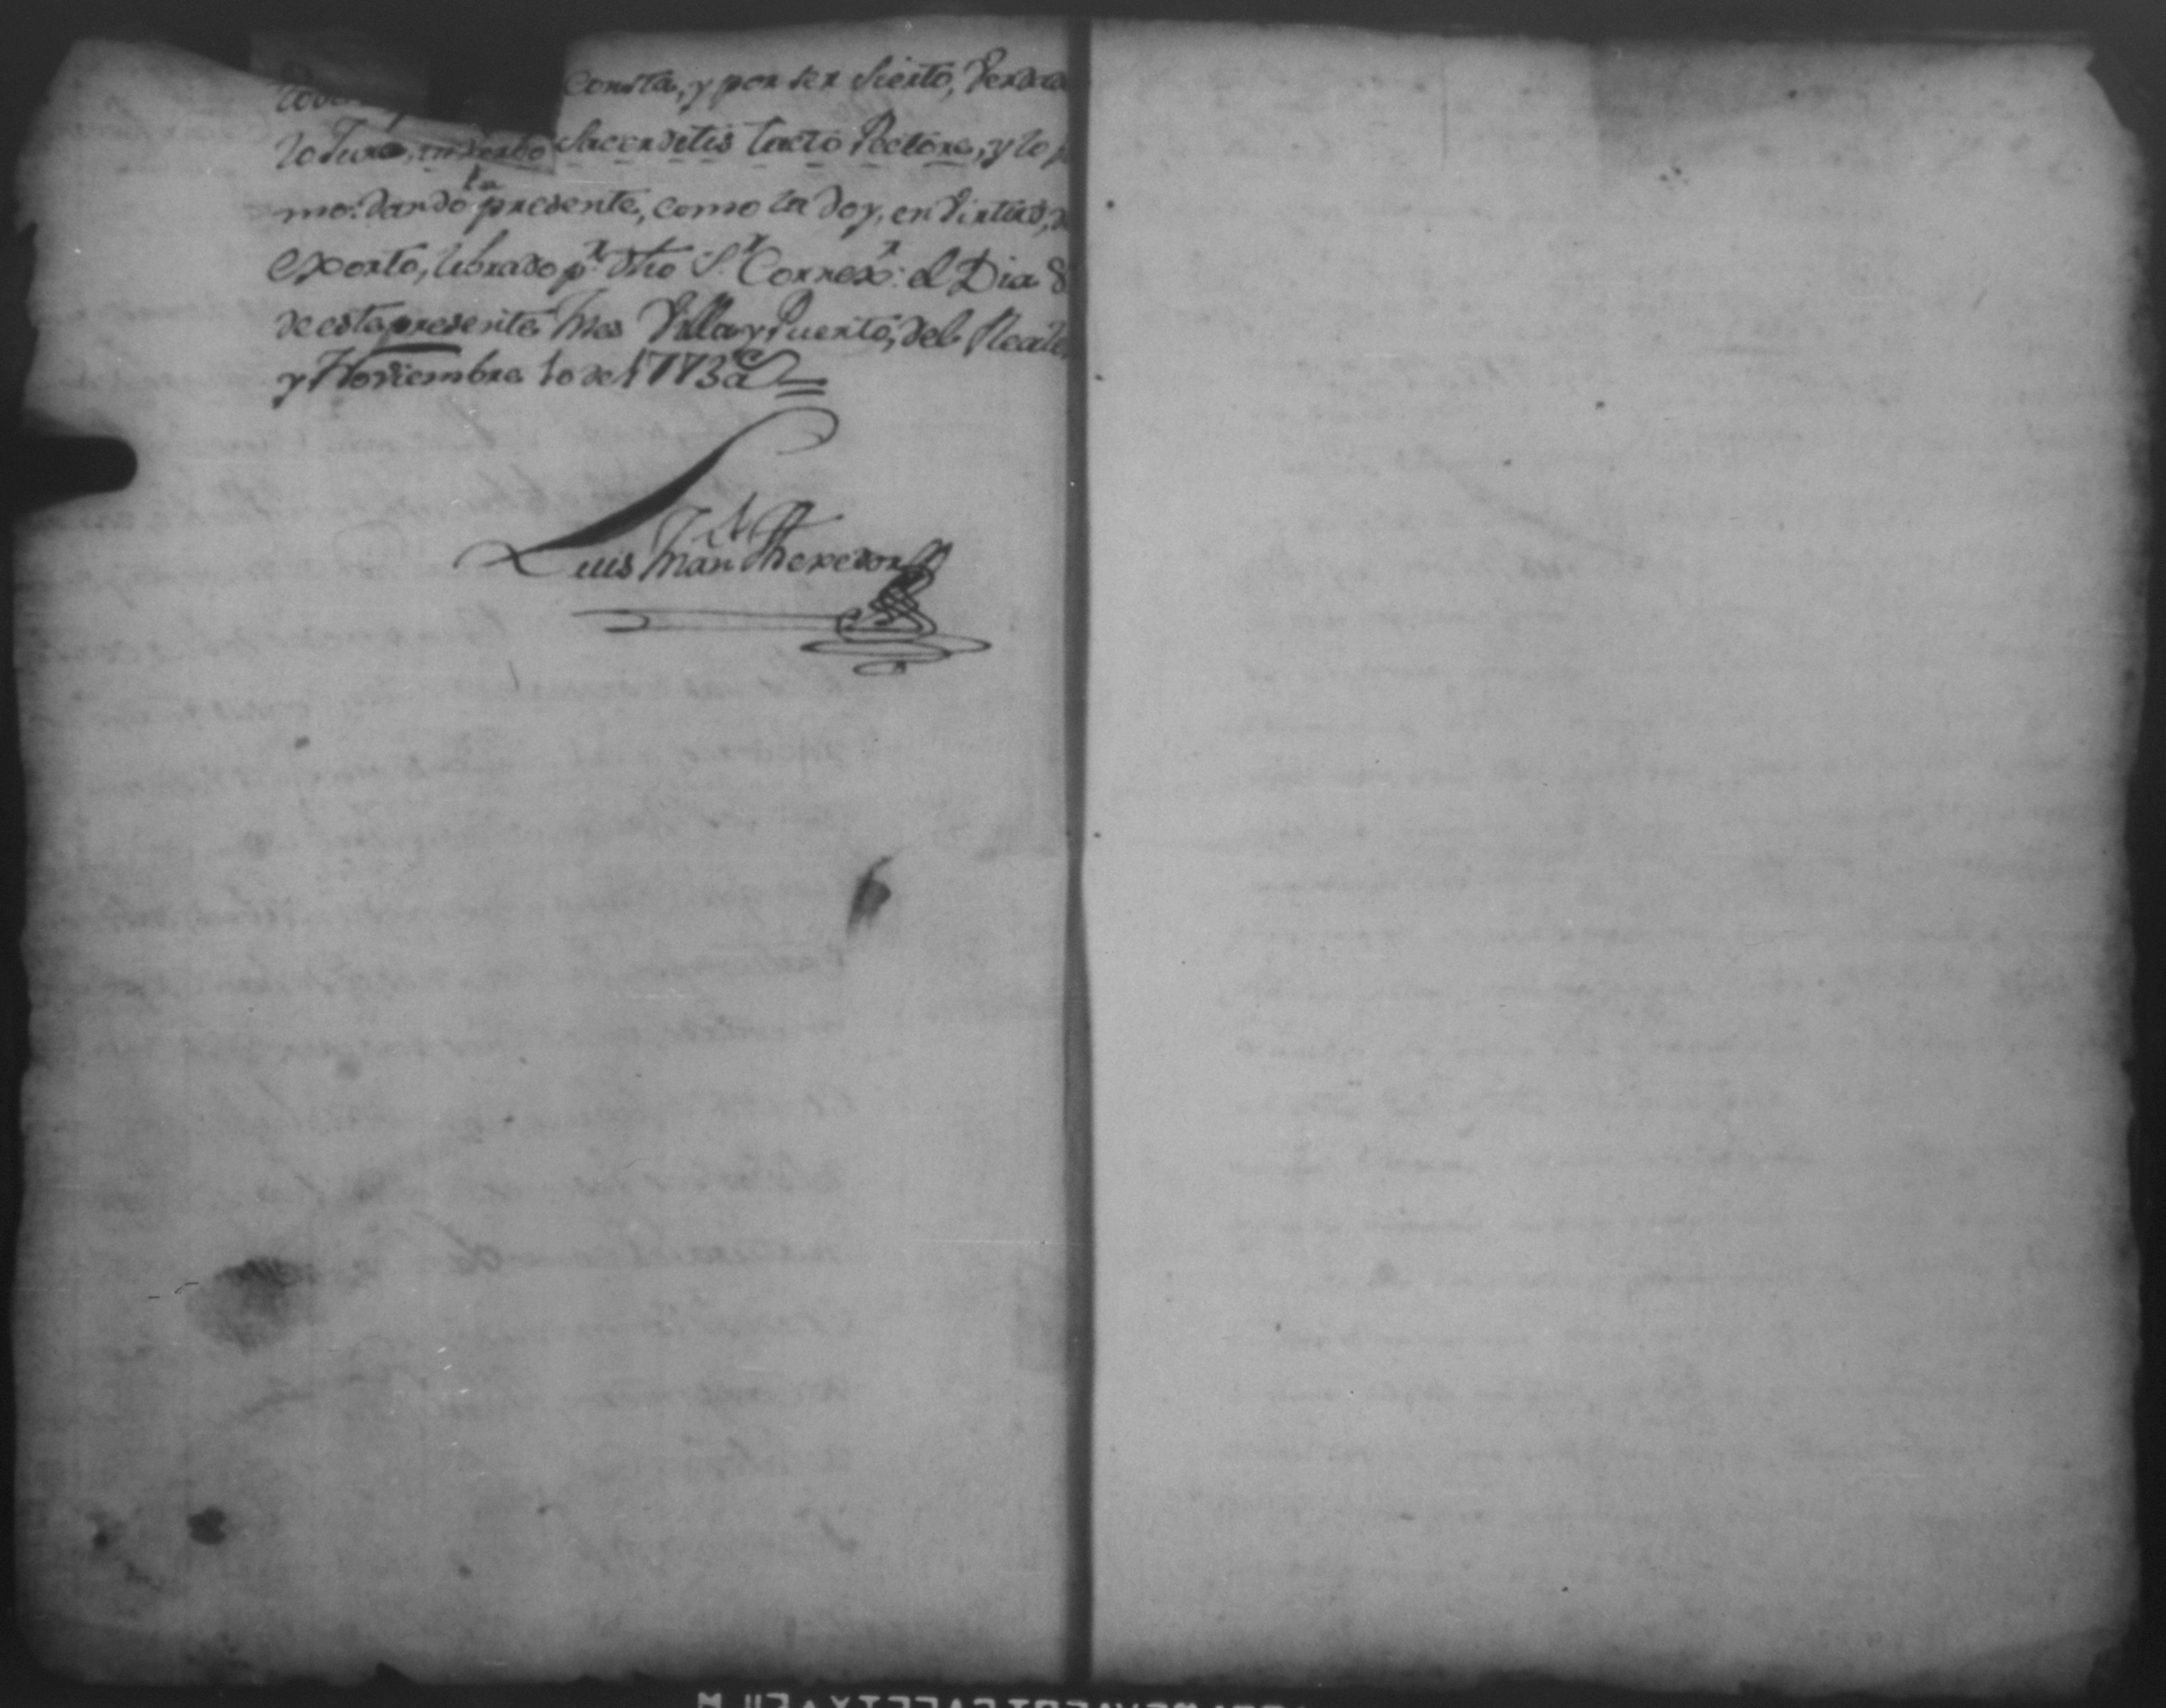 consta, y por ser sierto, verda
lo Juro, in verbo Sacerdotis tacto Pectore, y lo
mo. dando la presente, como la doy, en virtud,
exorto, librado pr. dho Sr. Correxr. el Dia 8
de este presente Mes Villa y Puerto, del Realejo
y Noviembre 10 de 1773 as
Luis Man Theredor